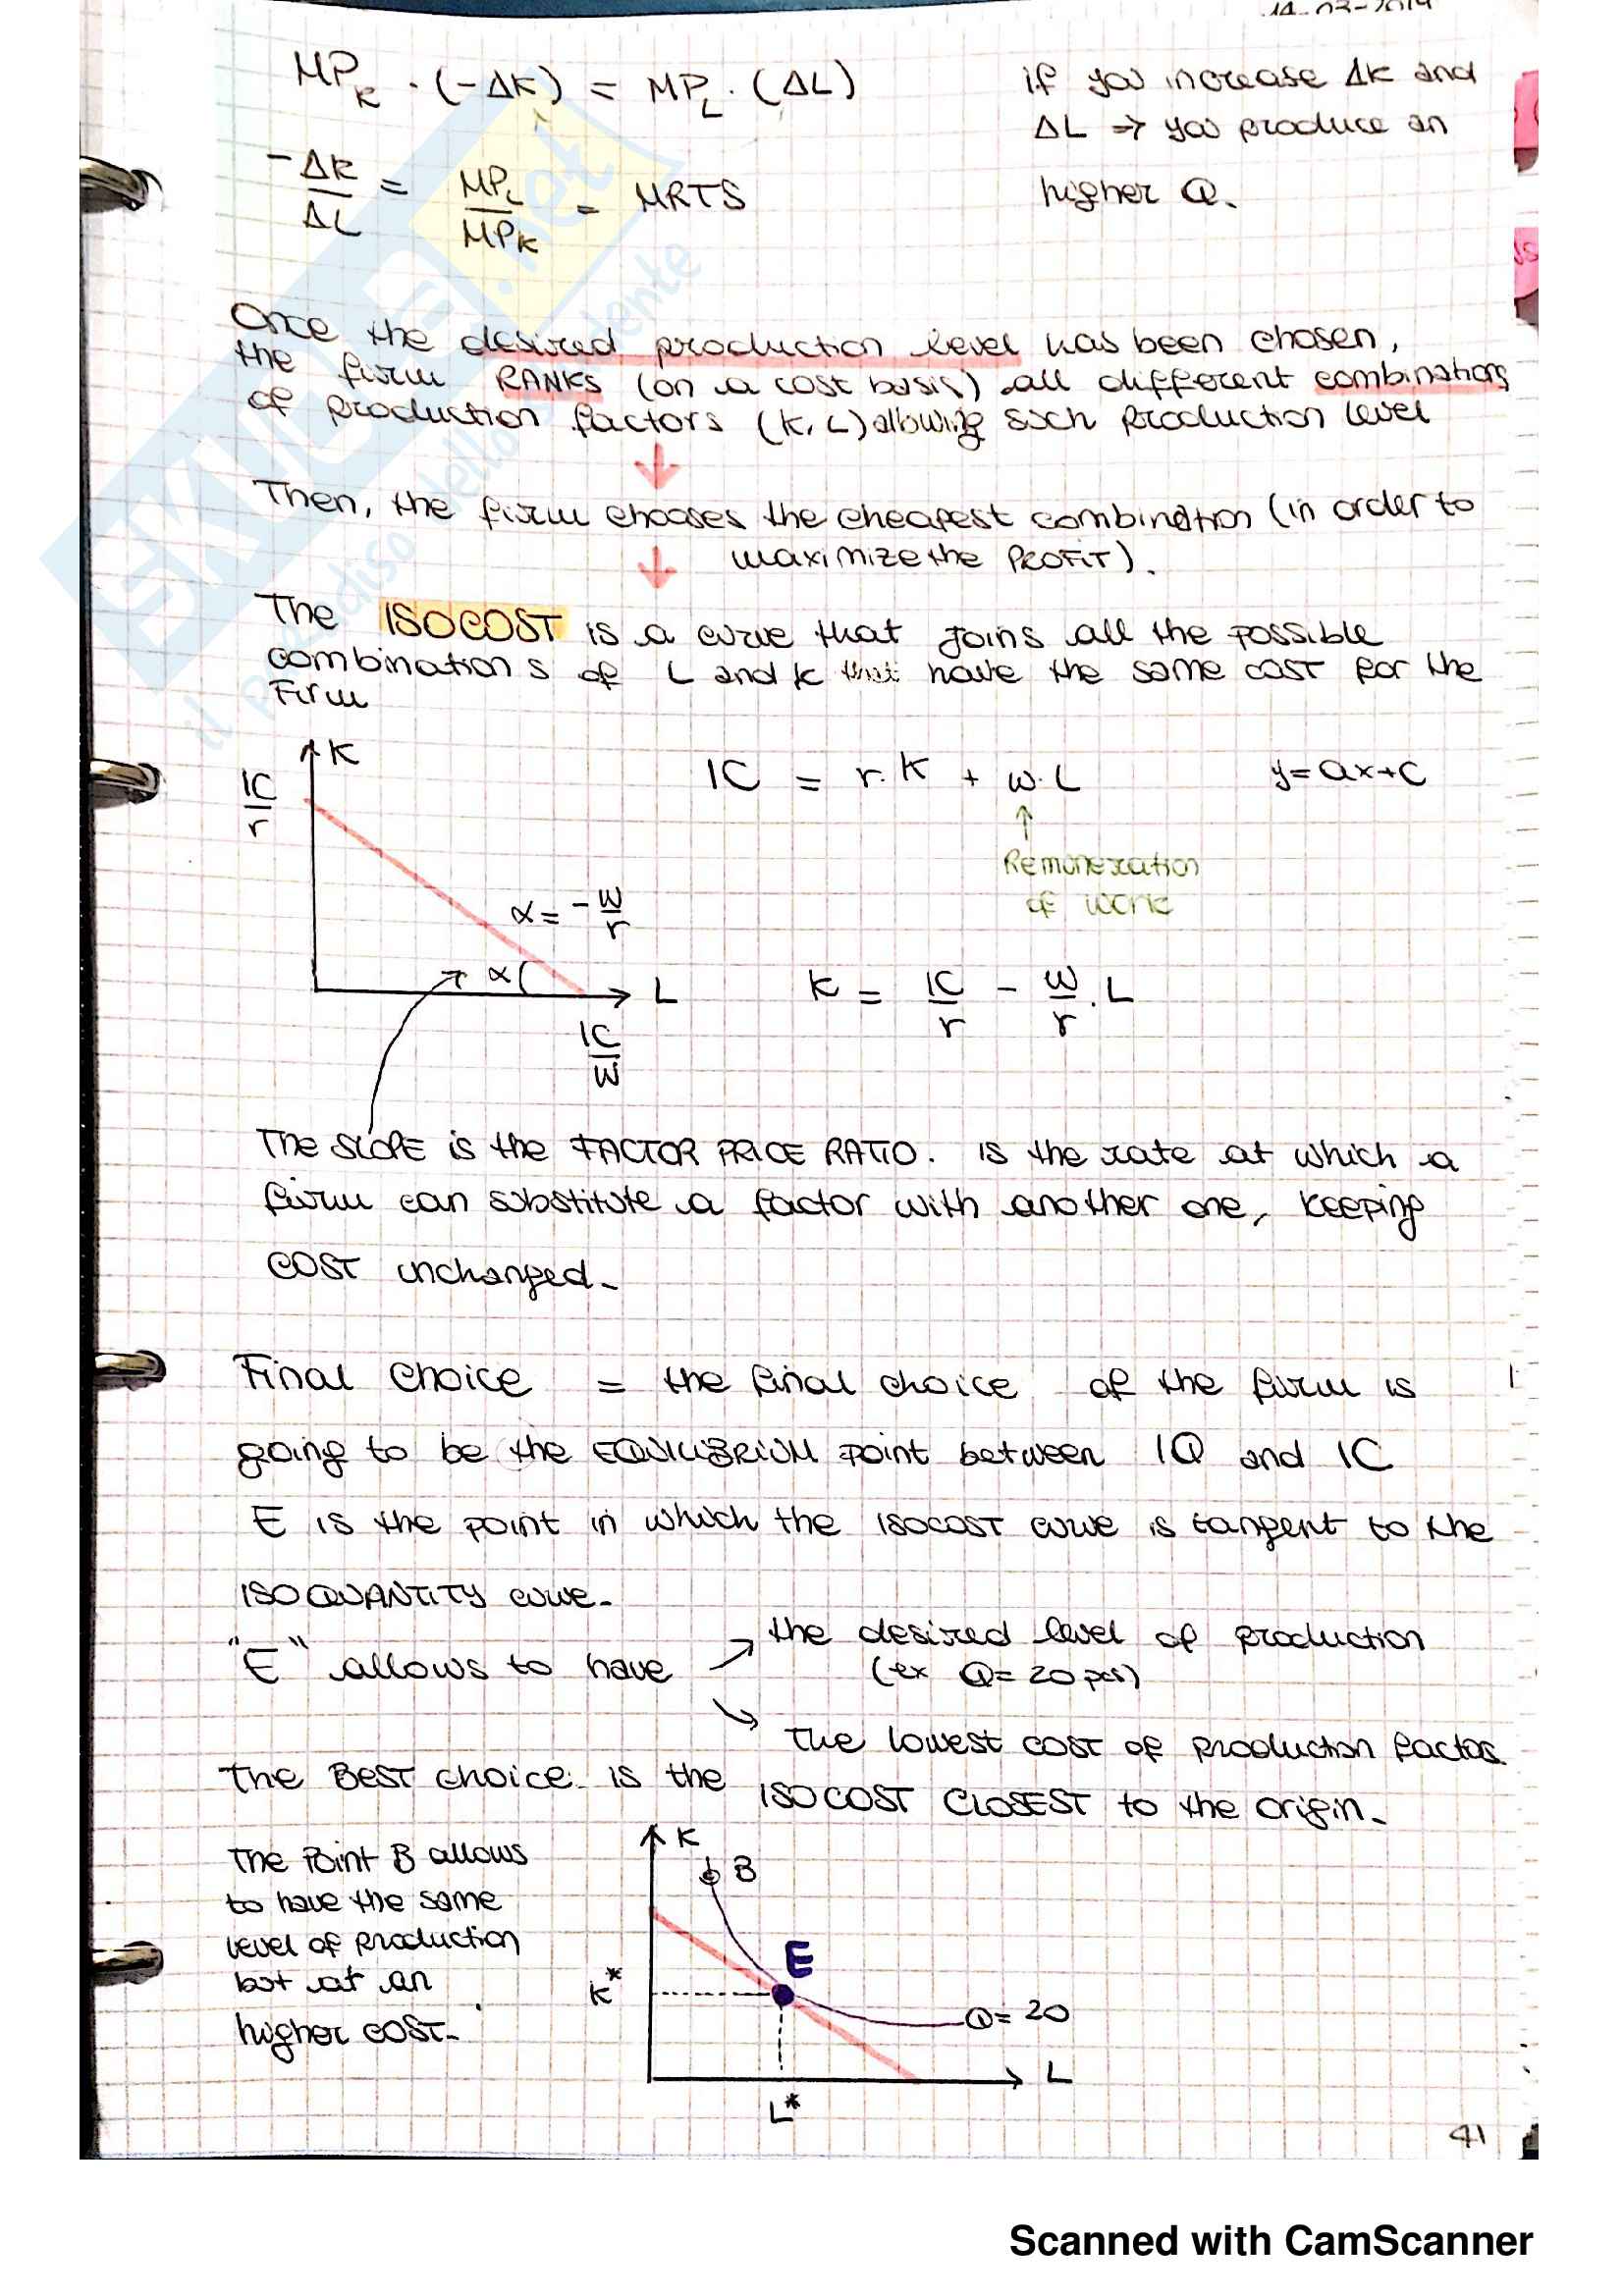 14-03-2019
MPK · (-ΔK) = MPL · (ΔL)
if you increase ΔK and
ΔL => you produce an
higher Q.
-ΔK/ΔL = MPL/MPK = MRTS
Once the desired production level has been chosen,
the firm RANKS (on a cost basis) all different combinations
of production factors (K, L) allowing such production level
Then, the firm chooses the cheapest combination (in order to
maximize the PROFIT).
The ISOCOST is a curve that joins all the possible
combinations of L and K that have the same cost for the
Firm
K
IC/r
IC = r·K + w·L
y=ax+c
Remuneration
of work
α = -w/r
α
L
IC/w
K = IC/r - w/r · L
The SLOPE is the FACTOR PRICE RATIO. Is the rate at which a
firm can substitute a factor with another one, keeping
COST unchanged.
Final choice = the final choice of the firm is
going to be the EQUILIBRIUM point between IQ and IC
E is the point in which the ISOCOST curve is tangent to the
ISOQUANTITY curve.
"E" allows to have
the desired level of production
(ex Q= 20 pcs)
The lowest cost of production factors
The BEST choice is the ISOCOST CLOSEST to the origin.
The Point B allows
to have the same
level of production
but at an
higher COST.
K
B
E
K*
Q= 20
L
L*
41
SKUOLA.net
il paradiso dello studente
Scanned with CamScanner